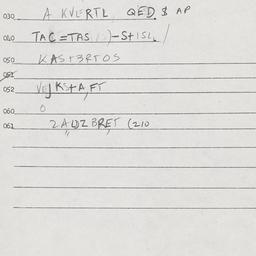 030 A KVERTL QED $ AP
040 TAC=TAS )-StISL /
050 KAST3RTOS
051
052 VEJKS+A,FT
060 O
061 2A BRET (210